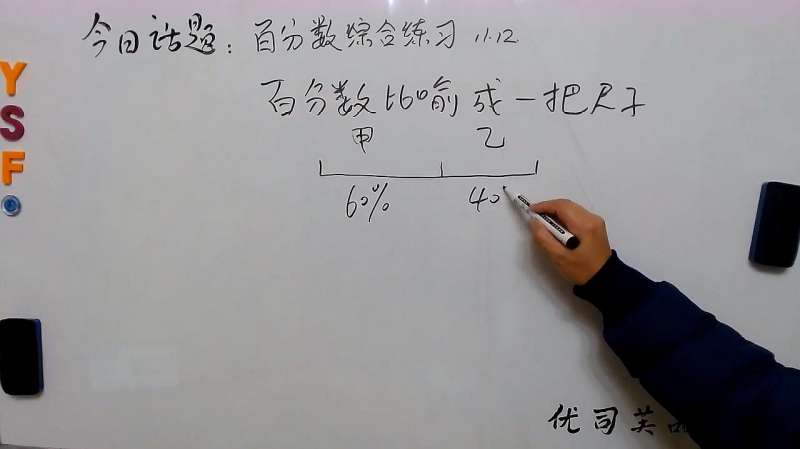 今日话题：百分数综合练习 11.12
百分数比喻成一把尺子
甲 乙
60% 40
YSF
优司芙